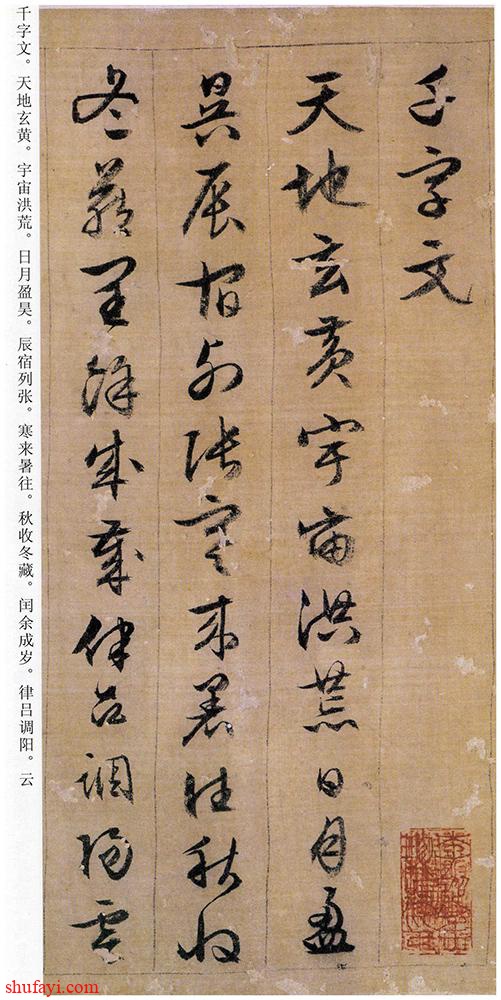 千字文
天地玄黄宇宙洪荒日月盈
昃辰宿列张寒来暑往秋收
冬藏闰馀成岁律吕调阳云
千字文。天地玄黄。宇宙洪荒。日月盈昊。辰宿列张。寒来暑往。秋收冬藏。闰余成岁。律吕调阳。云
shufayi.com